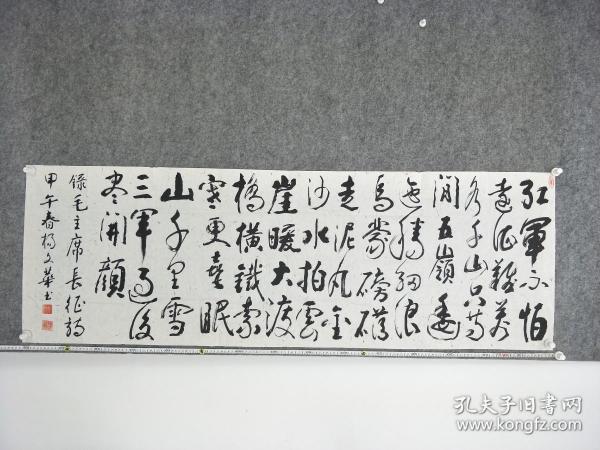 红軍不怕
遠征難萬
水千山只等
閒五嶺逶
迤騰細浪
烏蒙磅礴
走泥丸金
沙水拍雲
崖暖大渡
橋橫鐵索
寒更喜眠
山千里雪
三軍過後
尽開顏
錄毛主席長征詩
甲午春楊文華书
孔夫子旧書网
www.kongfz.com